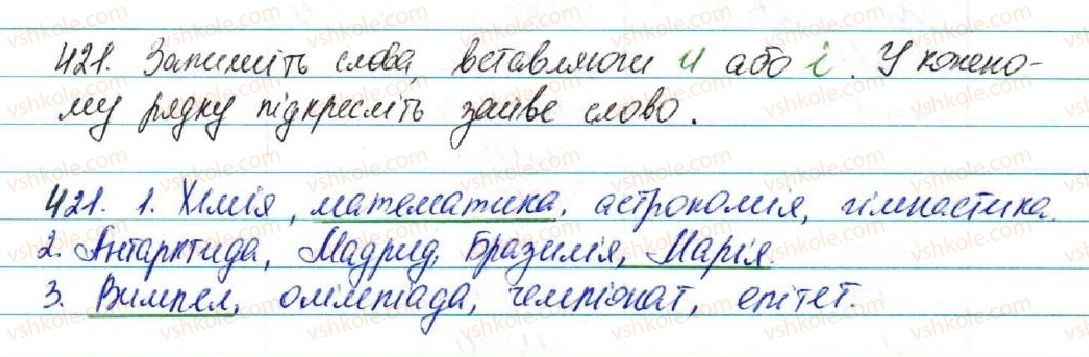 421. Запишіть слова, вставляючи и або і. У кожно-
му рядку підкресліть зайве слово.
421. 1. Хімія, математика, астрономія, гімнастика.
2. Антарктида, Мадрид, Бразилія, Марія.
3. Вимпел, олімпіада, чемпіонат, епітет.